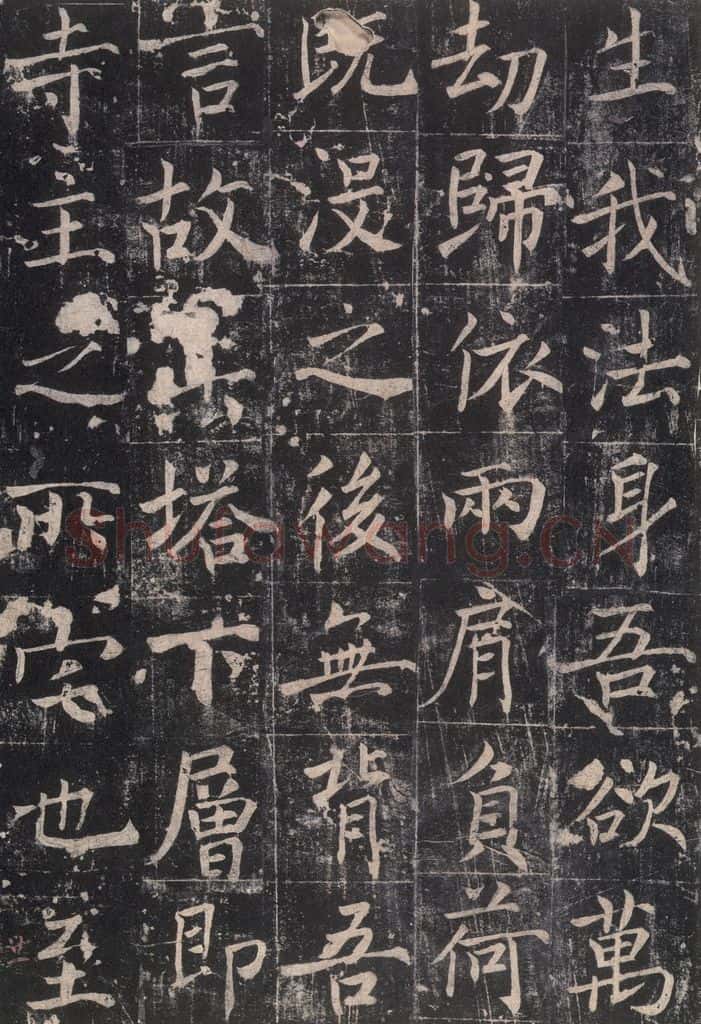 生我法身吾欲萬
劫歸依兩肩負荷
既没之後無背吾
言故其塔下層即
寺主之所宅也至
Shufawang.CN